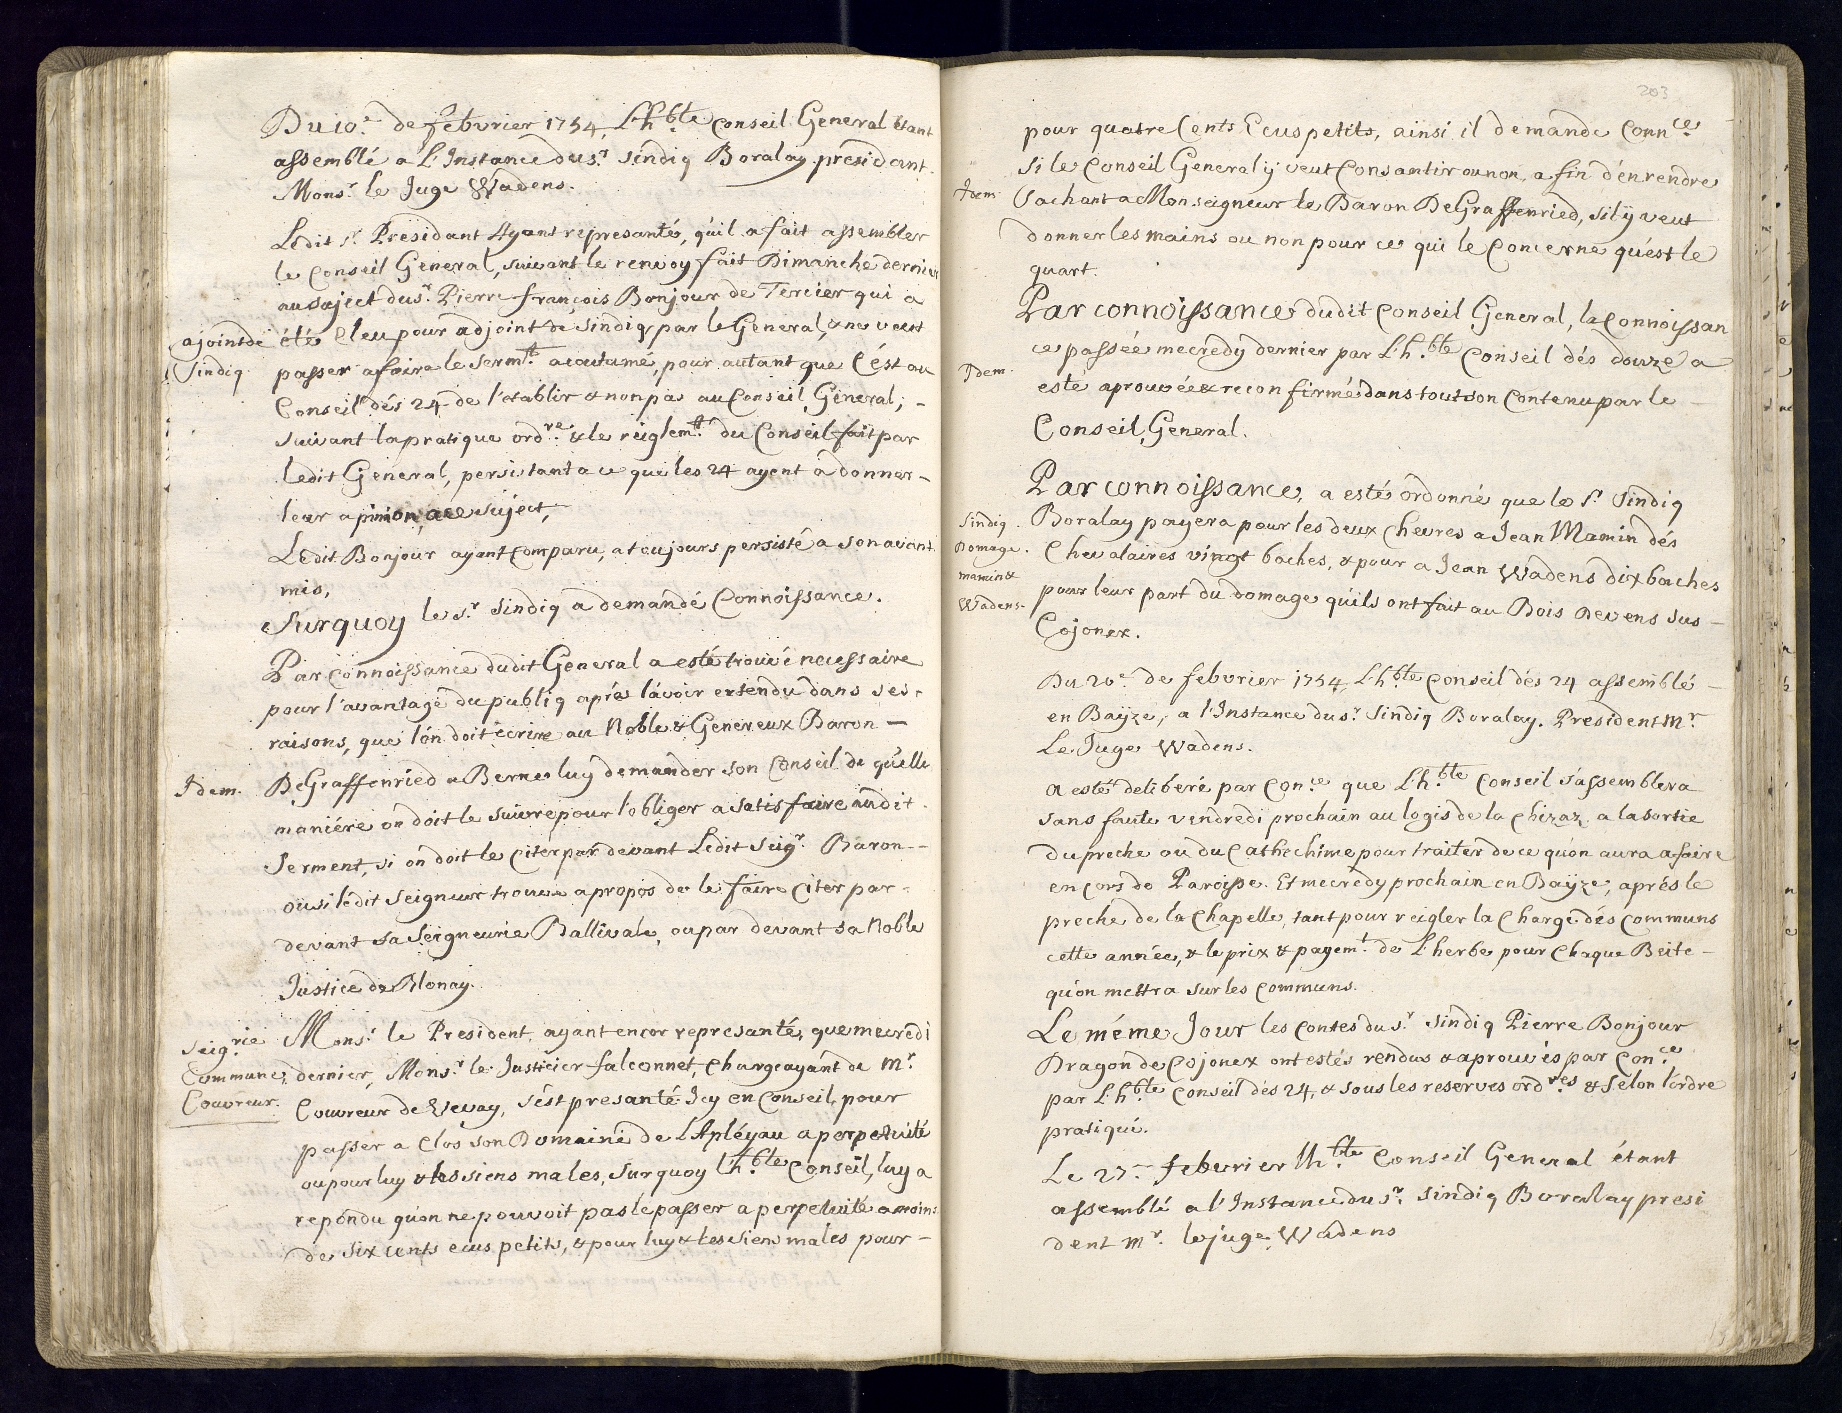 Du 10.e de febvrier 1754, L'h.ble Conseil General êtant
assemblé a L'Instance du s.r sindiq Boralay. présidant.
Mons.r le Juge Wadens.
Ledit s.r Présidant Ayant représanté, quil a fait assembler
le Conseil General, suivant le renvoy fait Dimanche dernier
au suject du s.r Pierre françois Bonjour de Tercier qui a
ajoint de
Sindiq
été Eleu pour adjoint de sindiq, par le General, & ne veut
passer a faire le serm.t acoutumé, pour autant que C'ést au
Conseil dés 24 de l'etablir & non pas au Conseil General; -
suivant la pratique ord.re & le réiglem.t du Conseil fait par
ledit General, persistant a ce que les 24 ayent a donner -
leur apinion, a ce suject,
Ledit Bonjour ayant Comparu, a toujours persisté a son avant
mis,
Surquoy le s.r sindiq a demandé Connoissance.
Par Connoissance dudit General a esté trouvé necessaire
pour l'avantage du publiq aprés lávoir entendu dans ses -
raisons, que lón doit écrire au Noble & Genereux Baron -
Idem.
DeGraffenried a Berne luy demander son Conseil de qu'elle
maniére on doit le suivre pour lobliger a satisfaire audit.
Serment, si on doit le Citer par devant Ledit Seig.r Baron --
ou si lédit seigneur trouve a propos de le faire Citer par -
devant sa Seigneurie Ballivale, ou par devant sa Noble
Justice de Blonay.
Seig.rie
Commune,
Couvreur.
Mons.r le President, ayant encor represanté, que mecredi
dernier, Mons.r le Justicier falconnet, Chargeayant de M.r
Couvreur de Vevay, sést presanté Icy en Conseil, pour
passer a Clos son Domaine de L'Apléyau a perpetuité
ou pour luy & les siens males, Surquoy l'h.ble Conseil, luy a
repondu quon ne pouvoit pas le passer a perpetuité a moins
de six cents ecus petits, & pour luy & les siens males pour -
203
pour quatre Cents Ecus petits, ainsi il demande Conn.ce
si le Conseil General ÿ veut Consantir ou non, a fin d'én rendre
Idem
Sachant a Monseigneur le Baron DeGraffenried, sil ÿ veut
donner les mains ou non pour ce qui le Concerne quést le
quart.
Par connoissance dudit Conseil General, la Connoissan
Idem
ce passée mecredy dernier par L'h.ble Conseil dés douze a
esté aprouvée & reconfirmé dans tout son Contenu par le -
Conseil, General.
Par connoissance, a estés ordonné que le s.r Sindiq
Sindiq.
Domage.
mamin &
Wadens.
Boralay payera pour les deux Chevres a Jean Mamin dés
Chevalaires vingt baches, & pour a Jean Wadens dix baches
pour leur part du domage quils ont fait au Bois Devens sus -
Cojonex.
Du 20.e de febvrier 1754, L'h.ble Conseil dés 24 assemblé -
en Baÿze, a l'Instance du s.r Sindiq Boralay. President M.r
Le Juge Wadens.
a estét deliberé par Con.ce que L'h.ble Conseil s'assemblera
sans faute vendredi prochain au logis de la Chizaz a la sortie
du preche ou du Cathechime pour traiter de ce quon aura a faire
en cors de Paroisse. Et mecredy prochain en Baÿze, aprés le
preche de la Chapelle, tant pour reigler la Charge dés Communs
cette année, & le prix & payem.t de L'herbe pour Chaque Beite -
quon mettra sur les Communs.
Le méme Jour les Contes du s.r Sindiq Pierre Bonjour
Dragon de Cojonex ont estés rendus & aprouvés par Con.ce
par L'h.ble Conseil dés 24, & sous les reserves ord.res & sélon l'órdre
pratiqué.
Le 27.e febvrier lh.ble Conseil General étant
assemblé a l'Instance du s.r Sindiq Boralay presi
dent m.r le juge Wadens